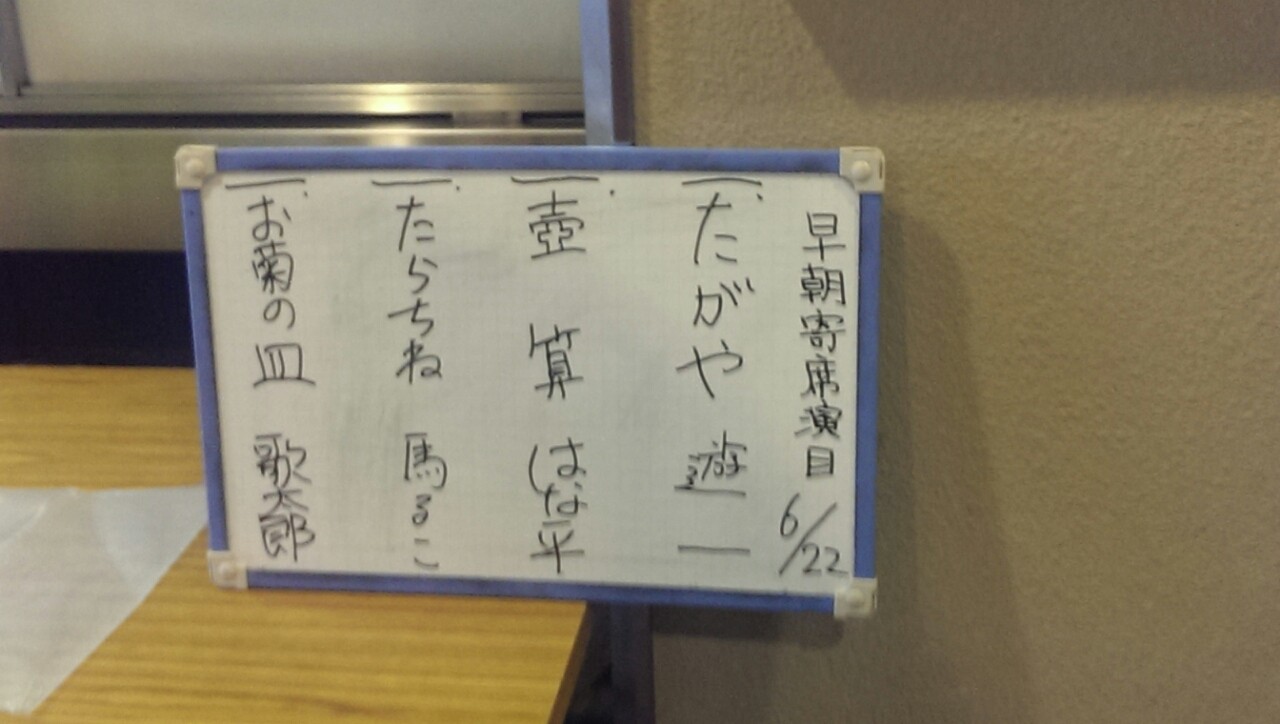 早朝寄席演目 6/22
一、たがや 遊一
一、壺算 はな平
一、たらちね 馬るこ
一、お菊の皿 歌太郎